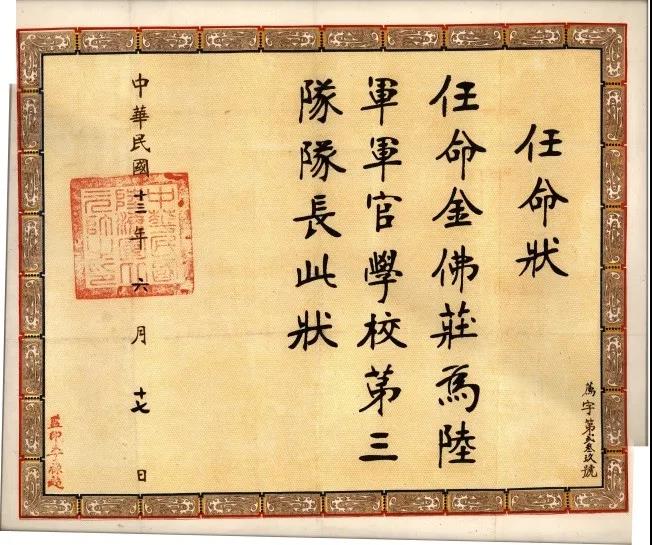 薦字第叁玖號
任命狀
任命金佛莊為陸
軍軍官學校第三
隊隊長此狀
中華民國十三年六月十七日
中華民國
陸海軍大
元帥之印
監印李祿超